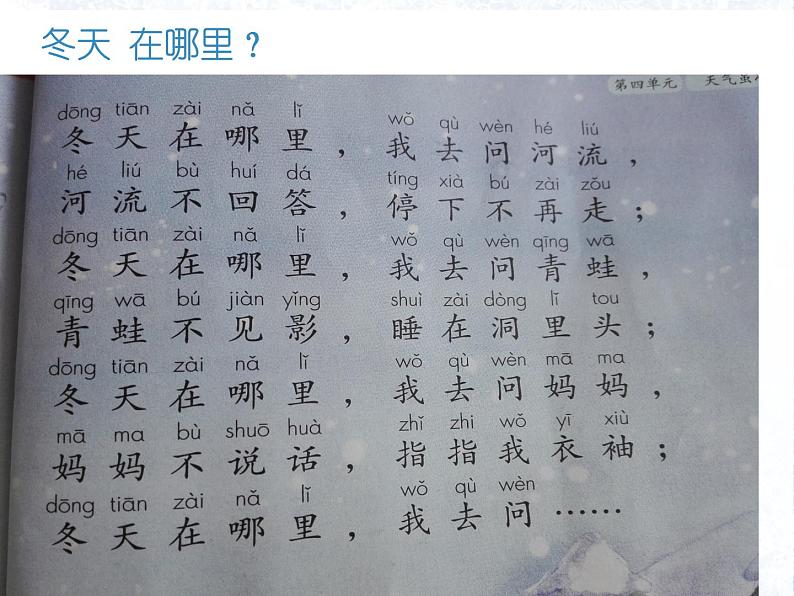 冬天 在哪里？
第四单元 天气虽
dōng tiān zài nǎ lǐ wǒ qù wèn hé liú
冬天在哪里，我去问河流，
hé liú bù huí dá tíng xià bú zài zǒu
河流不回答，停下不再走；
dōng tiān zài nǎ lǐ wǒ qù wèn qīng wā
冬天在哪里，我去问青蛙，
qīng wā bú jiàn yǐng shuì zài dòng lǐ tou
青蛙不见影，睡在洞里头；
dōng tiān zài nǎ lǐ wǒ qù wèn mā ma
冬天在哪里，我去问妈妈，
mā ma bù shuō huà zhǐ zhi wǒ yī xiù
妈妈不说话，指指我衣袖；
dōng tiān zài nǎ lǐ wǒ qù wèn
冬天在哪里，我去问……